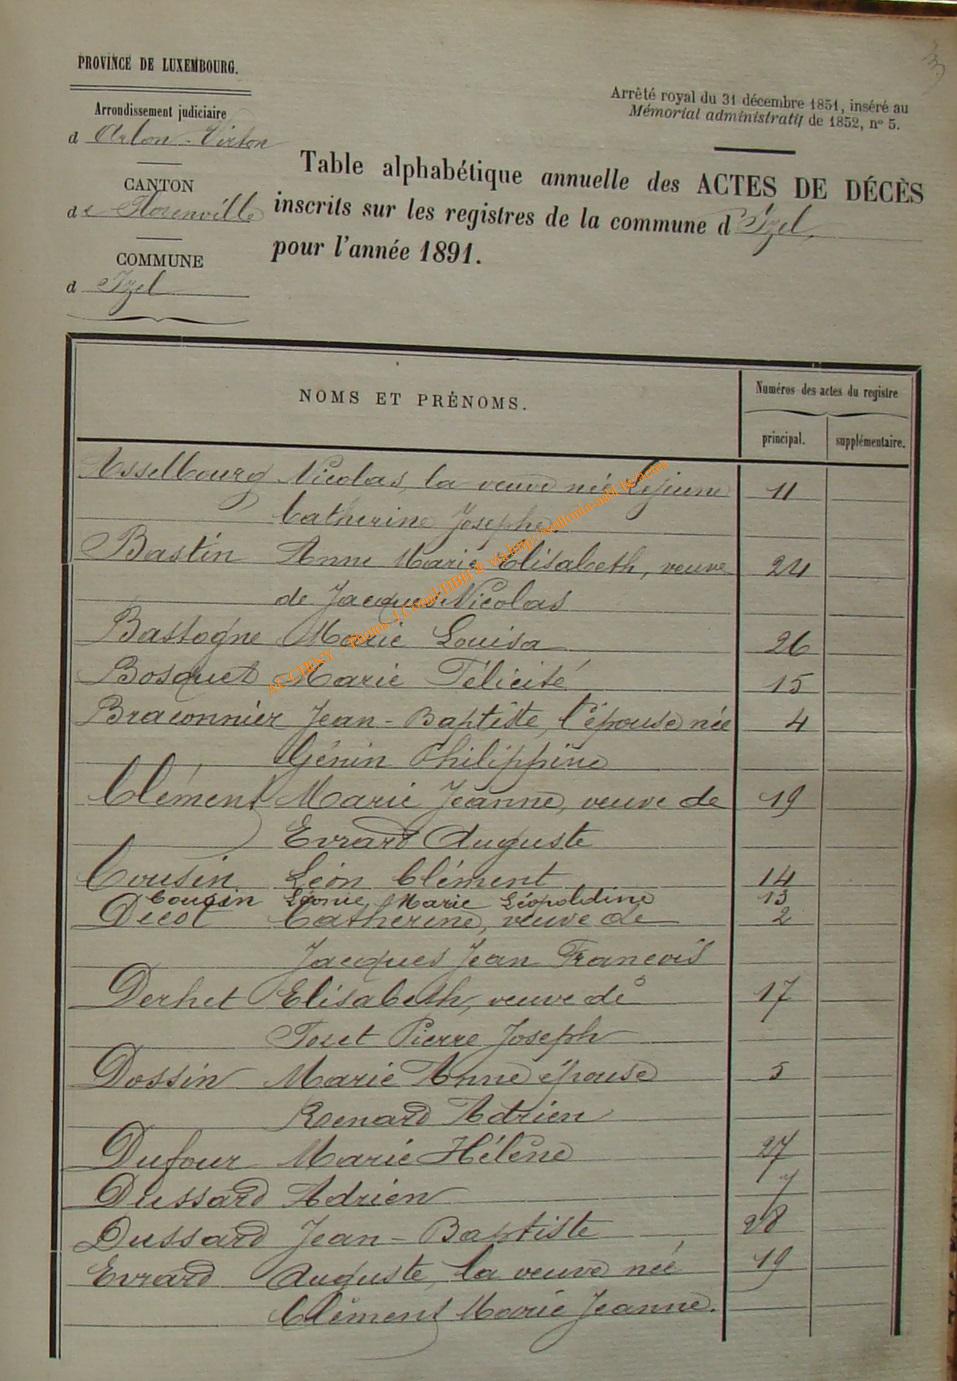 PROVINCE DE LUXEMBOURG.
Arrondissement judiciaire
d Arlon-Virton
CANTON
de Florenville
COMMUNE
d Izel
Arrêté royal du 31 décembre 1851, inséré au
Mémorial administratif de 1852, n° 5.
Table alphabétique annuelle des ACTES DE DÉCÈS
inscrits sur les registres de la commune d'Izel,
pour l'année 1891.
NOMS ET PRÉNOMS.
Numéros des actes du registre
principal. supplémentaire.
Asselbourg Nicolas, la veuve née Lejeune 11
Catherine Josephe
Bastin Anne Marie Elisabeth, veuve 24
de Jacques Nicolas
Bastogne Marie Louisa 26
Bosquet Marie Félicité 15
Braconnier Jean-Baptiste, l'épouse née 4
Génin Philippine
Clément Marie Jeanne, veuve de 19
Evrard Auguste
Cousin Léon Clément 14
Cousin Léonie Marie Léopoldine 13
Decot Catherine, veuve de 2
Jacques Jean François
Derhet Elisabeth, veuve de 17
Pierre Joseph
Dossin Marie Anne épouse 5
Renard Adrien
Dufour Marie Hélène 27
Dussard Adrien 7
Dussard Jean-Baptiste 28
Evrard Auguste, la veuve née 19
Clément Marie Jeanne.